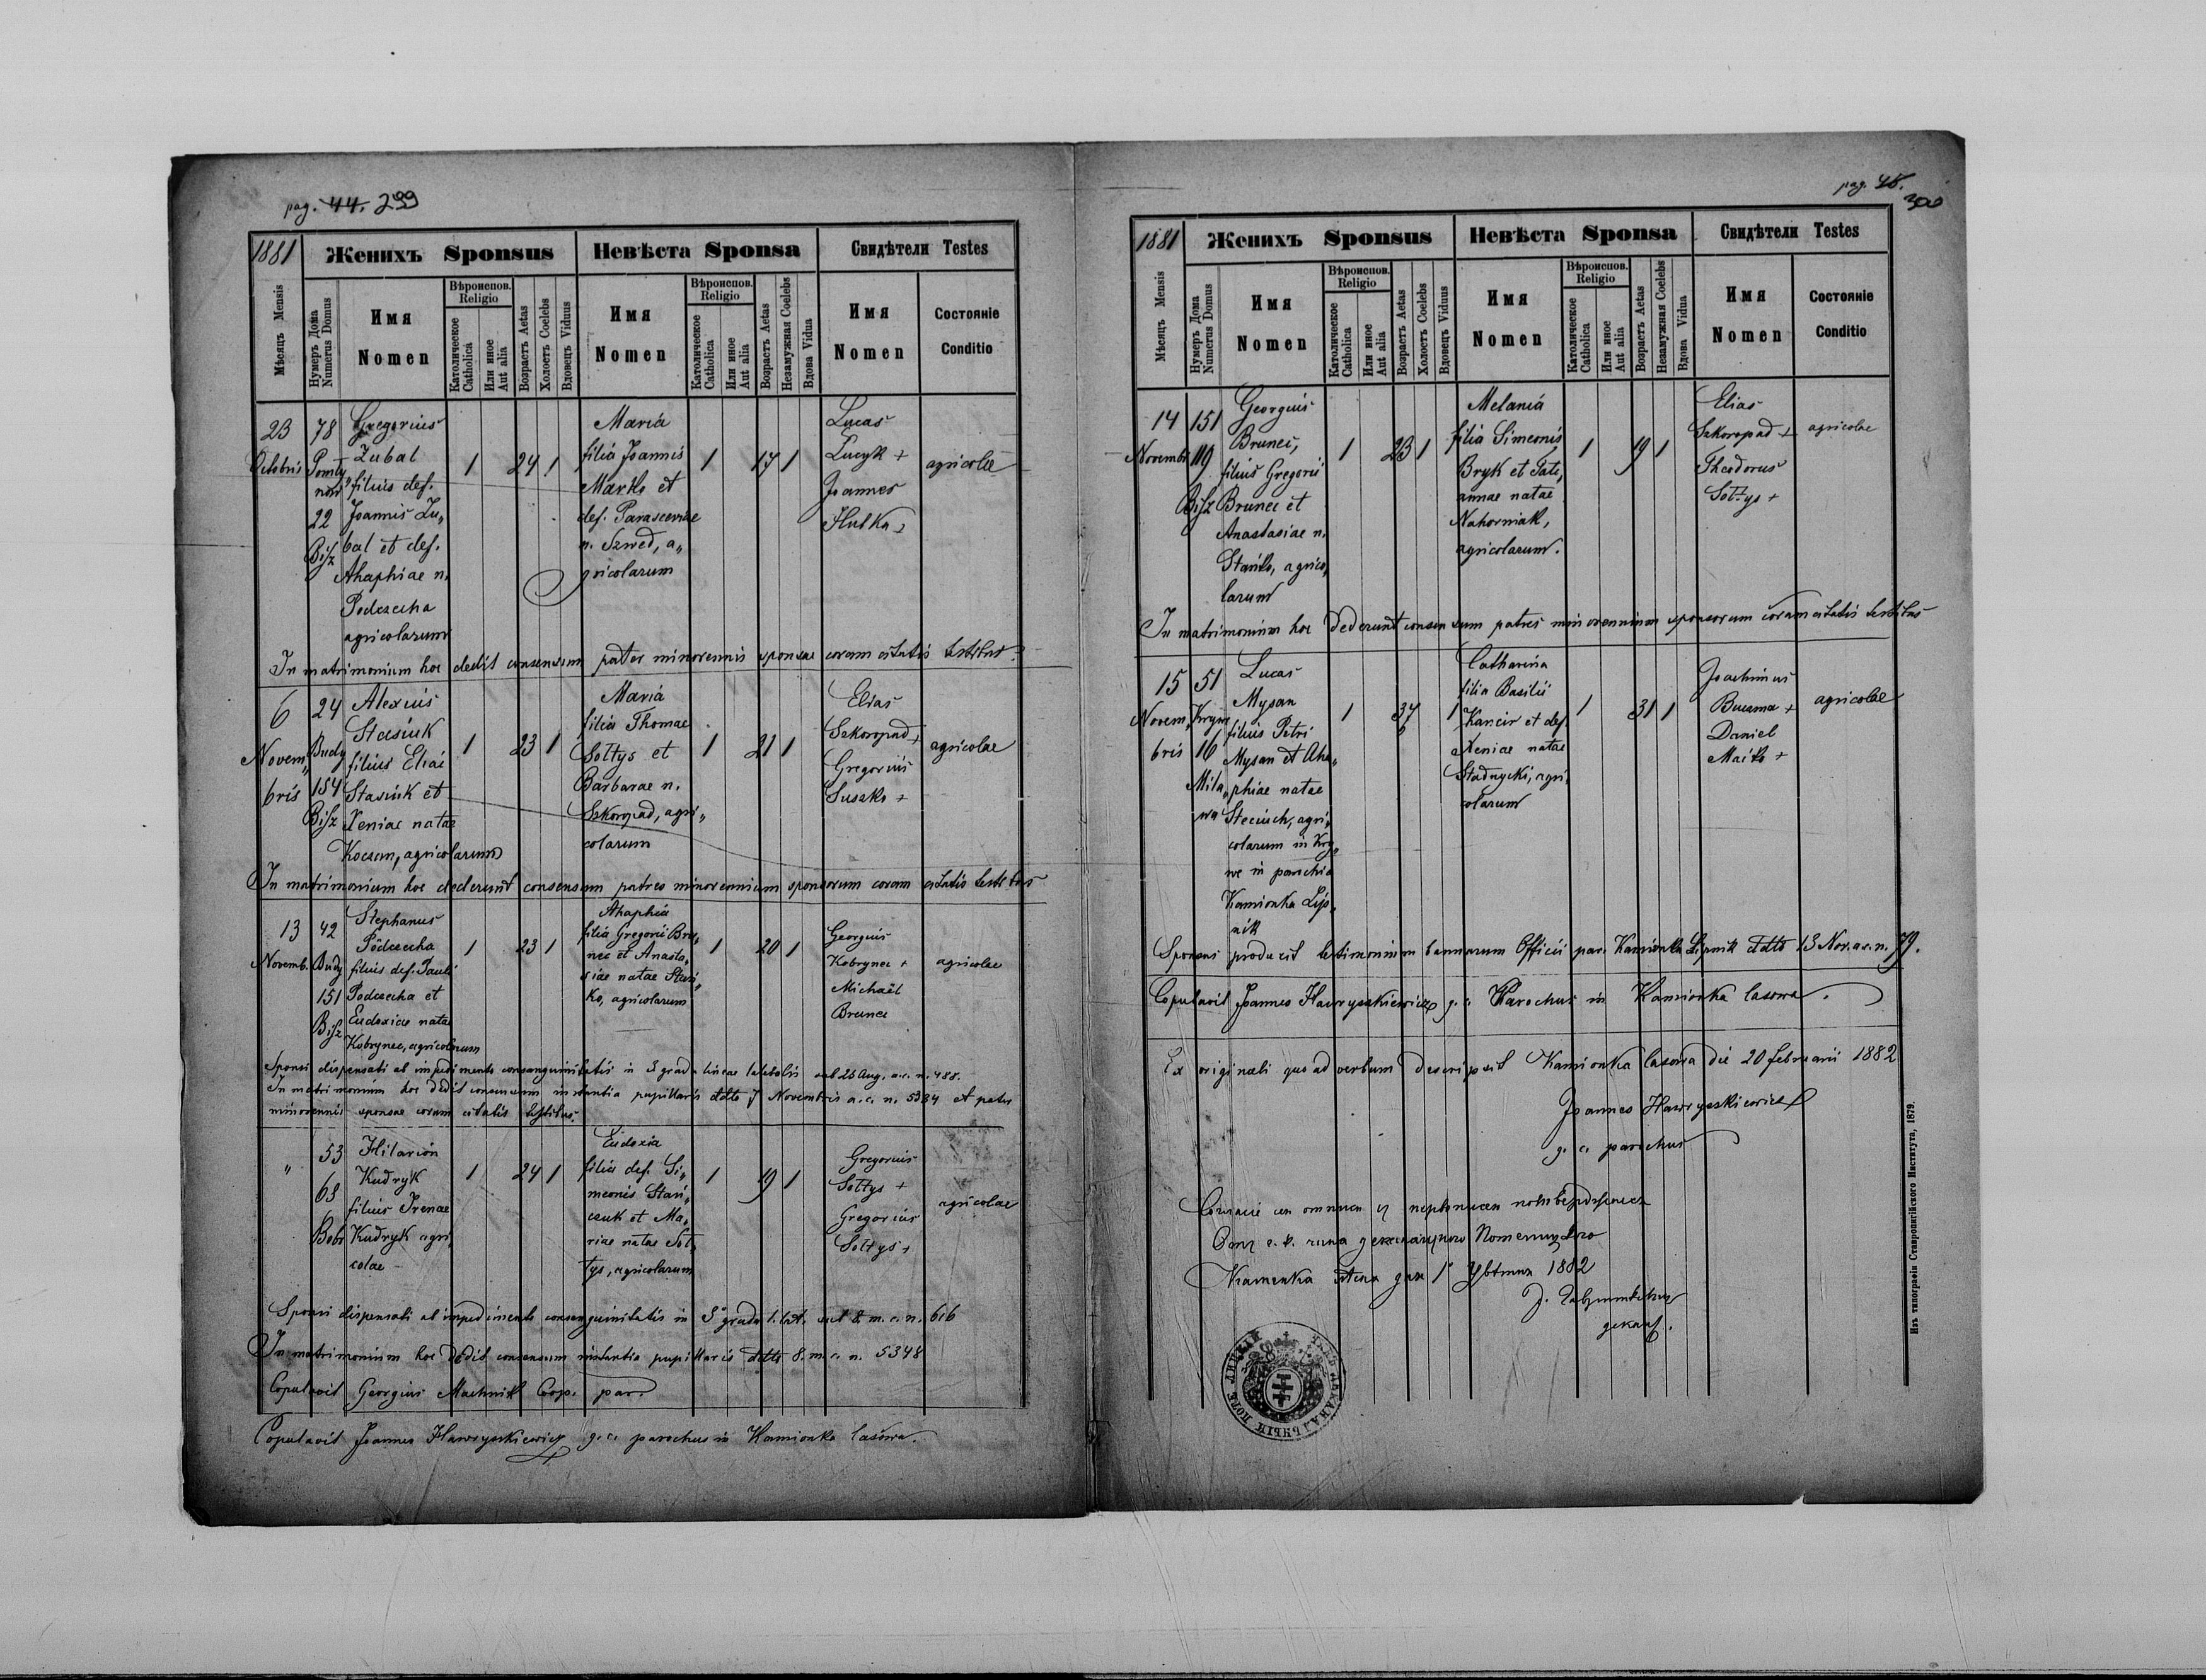 pag. 44. 299
1881
Женихъ Sponsus
Невѣста Sponsa
Свидѣтели Testes
Мѣсяцъ Mensis
Нумеръ Дома
Numerus Domus
Имя
Nomen
Вѣроиспов.
Religio
Католическое
Catholica
Или иное
Aut alia
Возрастъ Aetas
Холостъ Coelebs
Вдовецъ Viduus
Имя
Nomen
Вѣроиспов.
Religio
Католическое
Catholica
Или иное
Aut alia
Возрастъ Aetas
Незамужная Coelebs
Вдова Vidua
Имя
Nomen
Состояніе
Conditio
23
Octobris
78
22
Bisz
Gregorius
Zubal
filius def.
Joannis Zu„
bal et def.
Ahaphiae n.
Podczecha
agricolarum
1
24 1
Maria
filia Joannis
Marko et
def. Parasceviae
n. Szwed, a„
gricolarum
1
17 1
Lucas
Lucyk +
Joannes
Hutka +
agricolae
In matrimonium hoc dedit consensum pater minorennis sponsae coram citatis testibus.
6
Novem„
bris
24
Budy
154
Bisz
Alexius
Stasiuk
filius Eliae
Stasiuk et
Xeniae natae
Koczan, agricolarum
1
23 1
Maria
filia Thomae
Sołtys et
Barbarae n.
Szkoropad, agri„
colarum
1
21 1
Elias
Szkoropad +
Gregorius
Suszko +
agricolae
In matrimonium hoc dederunt consensum patres minorennium sponsorum coram citatis testibus
13
Novemb.
42
Budy
151
Bisz
Stephanus
Podczecha
filius def. Pauli
Podczecha et
Eudoxiae natae
Kobrynec, agricolarum
1
23 1
Ahaphia
filia Gregorii Bru„
nec et Anasta„
siae natae Stań„
ko, agricolarum
1
20 1
Georgius
Kobrynec +
Michaël
Brunec
agricolae
Sponsi dispensati ab impedimento consanguinitatis in 3 gradu lineae lateralis sub 25 Aug. a.c. n. 488.
In matrimonium hoc dedit consensum instantia pupillaris ddto 7 Novembris a.c. n. 5334 et pater
minorennis sponsae coram citatis testibus.
„
53
63
Bobr
Hilarion
Kudryk
filius Irenae
Kudryk agri„
colae
1
24 1
Eudoxia
filia def. Si„
meonis Stań„
czuk et Ma„
riae natae Soł„
tys, agricolarum
1
19 1
Gregorius
Sołtys +
Gregorius
Sołtys +
agricolae
Sponsi dispensati ab impedimento consanguinitatis in 3° gradu l. lat. sub 8. m. c. n. 616
In matrimonium hoc dedit consensum instantia pupillaris ddto 8. m. c. n. 5348
Copulavit Georgius Machnik Coop. par.
Copulavit Joannes Hawryszkiewicz g. c. parochus in Kamionka lasowa.
pag. 45.
300
1881
Женихъ Sponsus
Невѣста Sponsa
Свидѣтели Testes
Мѣсяцъ Mensis
Нумеръ Дома
Numerus Domus
Имя
Nomen
Вѣроиспов.
Religio
Католическое
Catholica
Или иное
Aut alia
Возрастъ Aetas
Холостъ Coelebs
Вдовецъ Viduus
Имя
Nomen
Вѣроиспов.
Religio
Католическое
Catholica
Или иное
Aut alia
Возрастъ Aetas
Незамужная Coelebs
Вдова Vidua
Имя
Nomen
Состояніе
Conditio
14
Novembr
151
119
Bisz
Georgius
Brunec,
filius Gregorii
Brunec et
Anastasiae n.
Stańko, agrico„
larum
1
23 1
Melania
filia Simeonis
Bryk et Tati„
annae natae
Nahorniak,
agricolarum.
1
19 1
Elias
Szkoropad +
Theodorus
Sołtys +
agricolae
In matrimonium hoc dederunt consensum patres minorennium sponsorum coram citatis testibus
15
Novem„
bris
51
16
Mila„
wa
Lucas
Mysan
filius Petri
Mysan et Aha„
phiae natae
Steciuch, agri„
colarum in Kry„
we in parochia
Kamionka Lip„
nik
1
37
1
Catharina
filia Basilii
Kancir et def.
Xeniae natae
Stadnycki, agri„
colarum
1
31 1
Joachimus
Buczma +
Daniel
Maiko +
agricolae
Sponsus produxit testimonium bannorum Officii par. Kamionka Lipnik ddto 13 Nov. a.c. n. 79.
Copulavit Joannes Hawryszkiewicz g. c. Parochus in Kamionka lasowa.
Ex originali quoad verbum descripsit Kamionka lasowa die 20 februarii 1882
Joannes Hawryszkiewicz
g. c. parochus
1882
Изъ типографіи Ставропигійского Института, 1879.